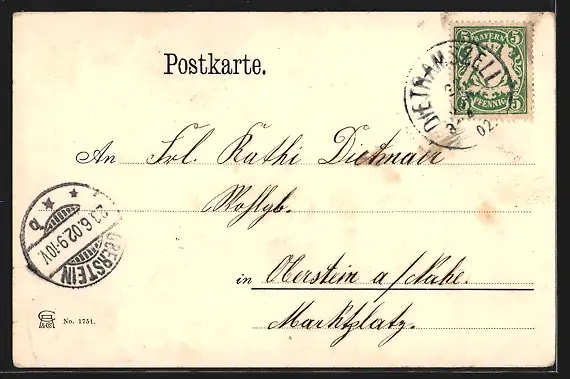 Postkarte.
5 BAYERN 5
5 PFENNIG 5
DIETRAMSZELL
02.
An Frl. Käthi Dietmair
Wohlgb.
in Oberstein a/Nahe.
Marktplatz.
OBERSTEIN
23.6.02.9-10V.
b
No. 1751.